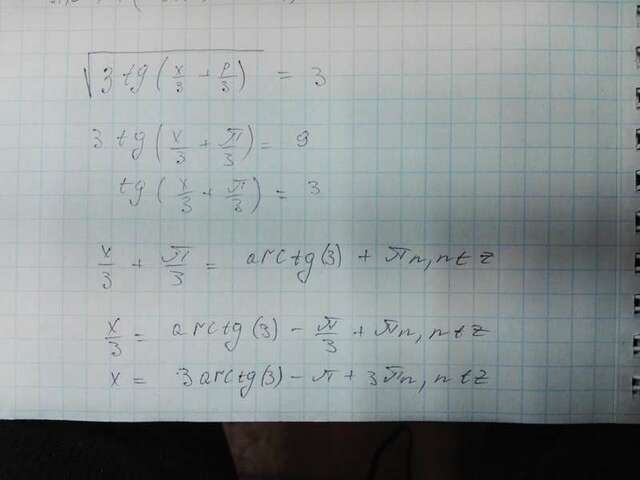 √3 tg (x/3 + p/3) = 3
3 tg (x/3 + π/3) = 9
tg (x/3 + π/3) = 3
x/3 + π/3 = arctg(3) + πn, n∈z
x/3 = arctg(3) - π/3 + πn, n∈z
x = 3arctg(3) - π + 3πn, n∈z